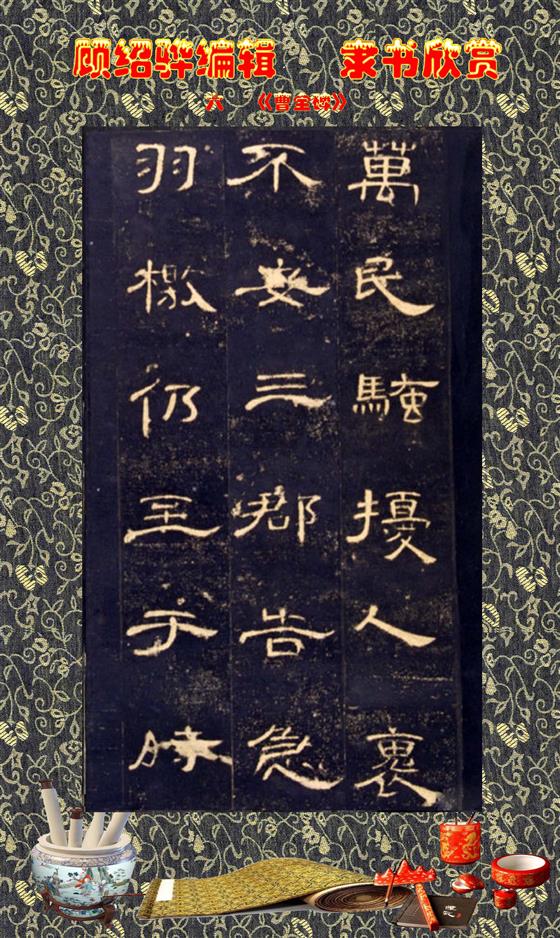 顾绍骅编辑 隶书欣赏
六 《曹全碑》
萬民騷擾人褱
不安三郡告急
羽檄仍至于時